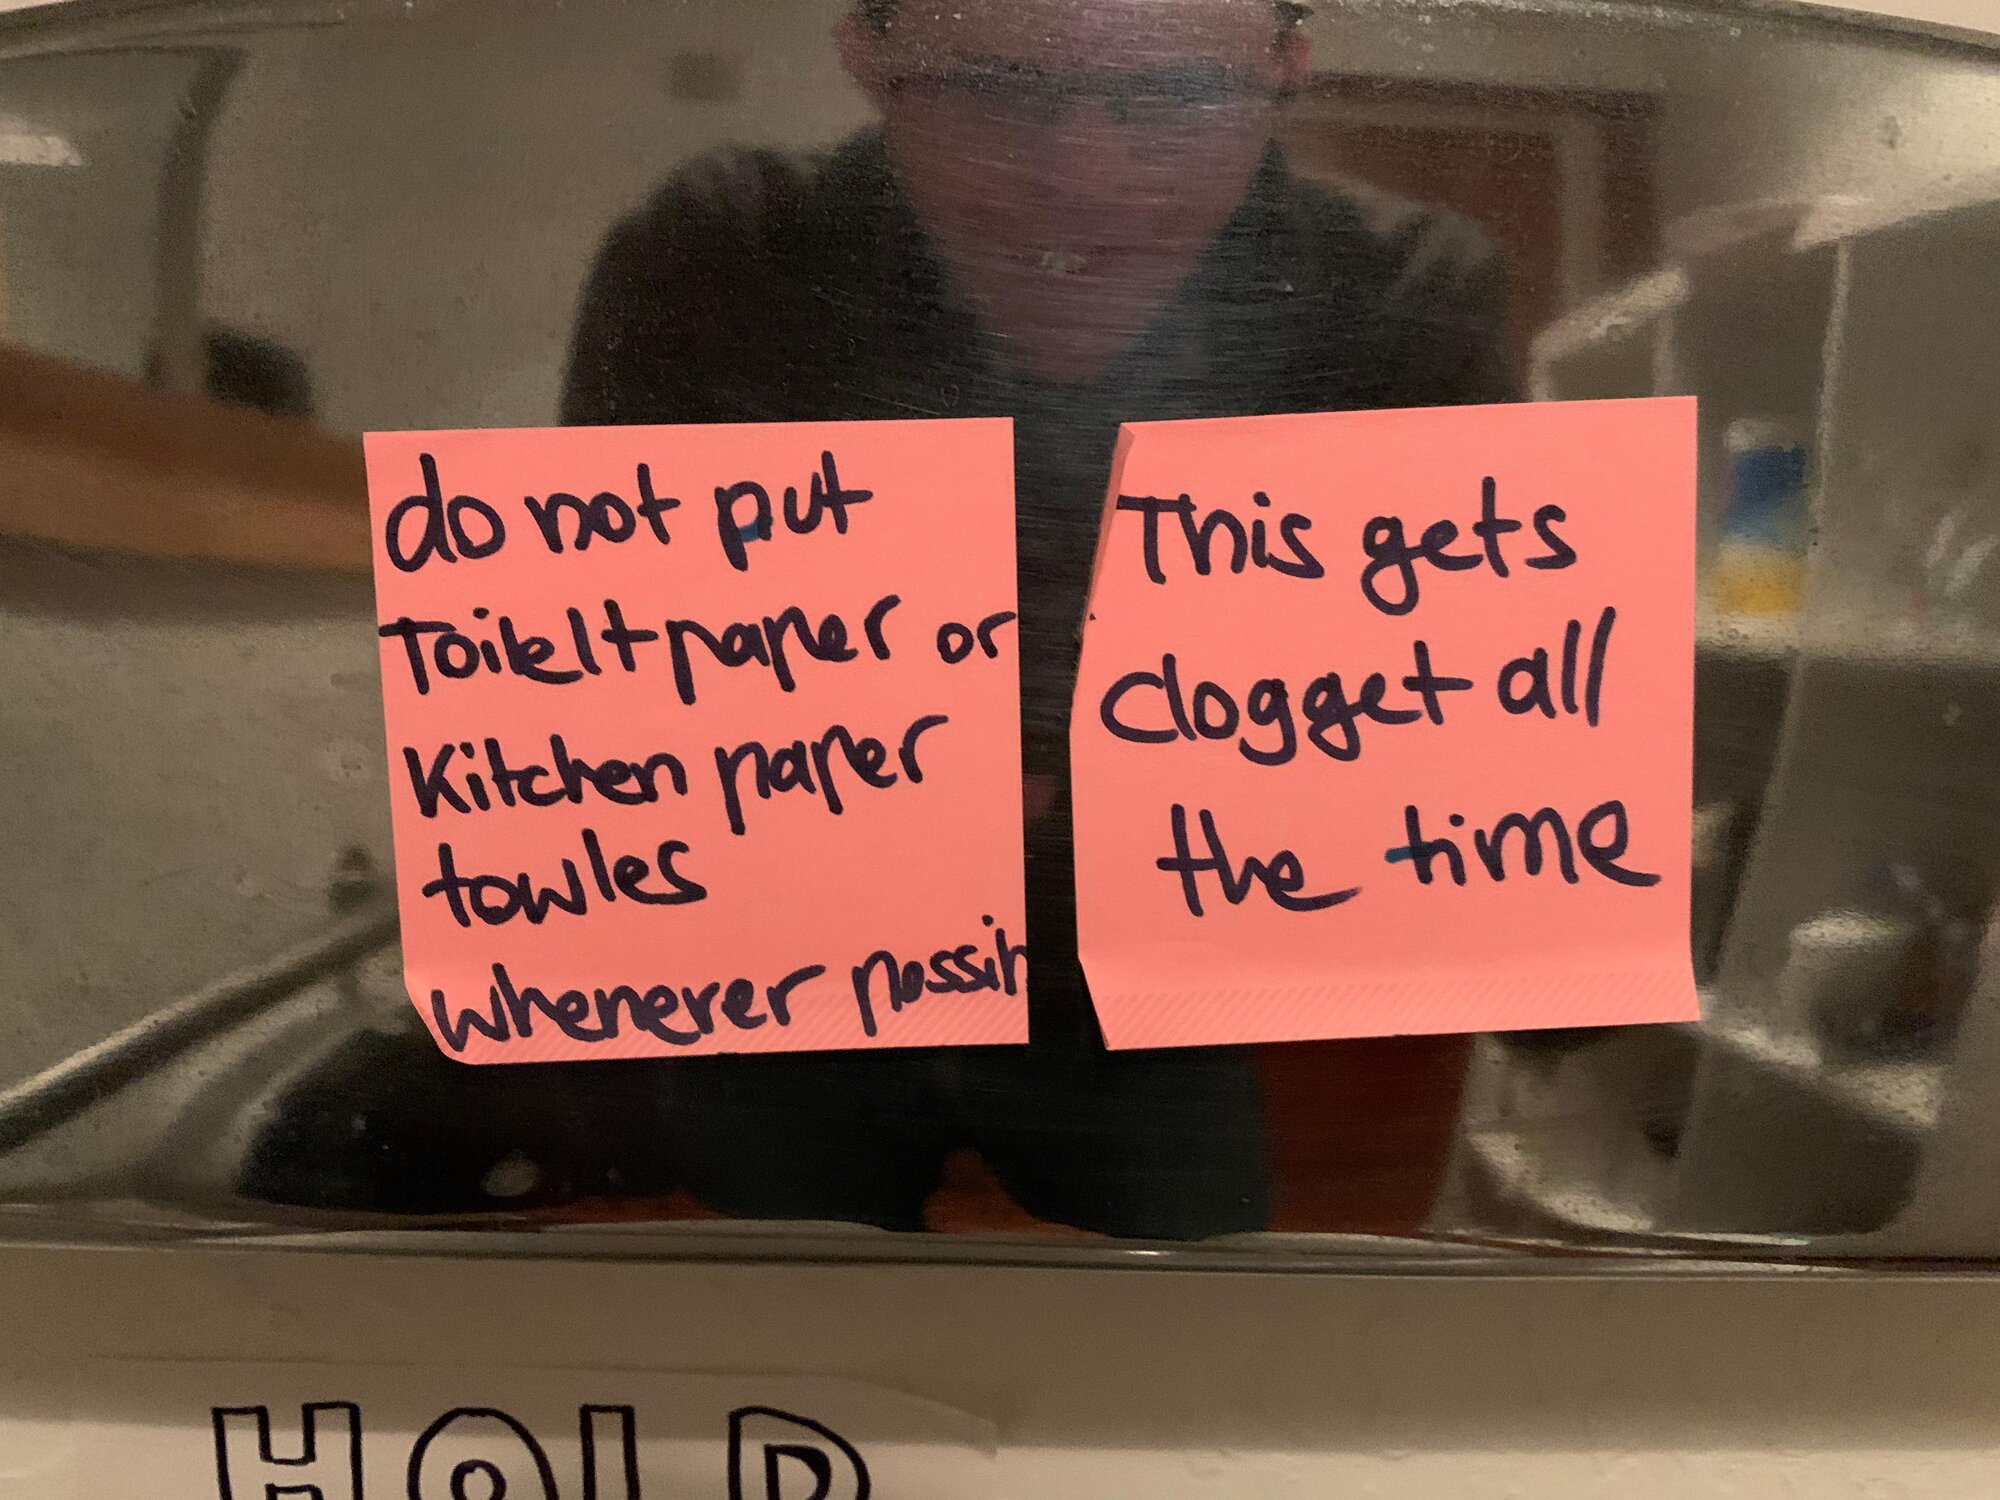 do not put
Toilelt paper or
Kitchen paper
towles
whenever possib
This gets
clogget all
the time
HOLD